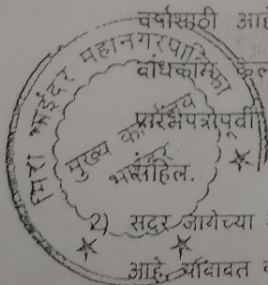 वर्षासाठी आहे
बांधकाम
प्रारंभपत्रापूर्वी
राहिल.
2) सदर जागेच्या
आहे, याबाबत
मिरा भाईंदर महानगरपालिका
मुख्य कार्यालय
भाईंदर